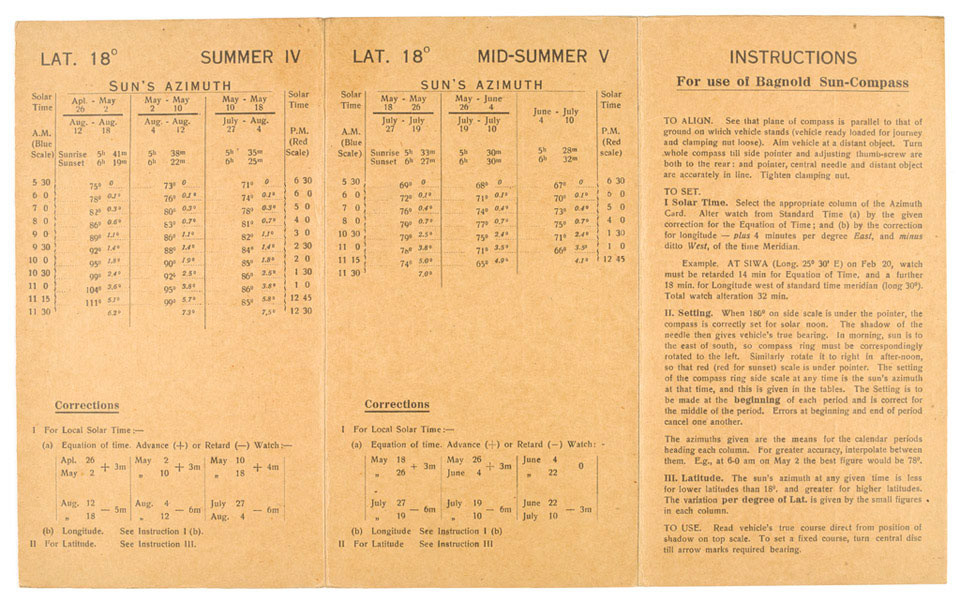 LAT. 18° SUMMER IV
SUN'S AZIMUTH
Solar Time
A.M. (Blue Scale)
Apl. - May
26 2
Aug. - Aug.
12 18
May - May
2 10
Aug. - Aug.
4 12
May - May
10 18
July - Aug.
27 4
Solar Time
P.M. (Red Scale)
Sunrise 5h 41m 5h 38m 5h 35m
Sunset 6h 19m 6h 22m 6h 25m
5 30 6 30
75° 0 73° 0 71° 0
6 0 6 0
78° 0.1° 76° 0.1° 74° 0.1°
7 0 5 0
0.3° 80° 0.3° 78°
8 0 4 0
85° 0.6° 83° 0.7° 81° 0.7°
9 0 3 0
89° 1.1° 86° 1.1° 82° 1.1°
9 30 2 30
92° 1.4° 88° 1.4° 84° 1.4°
10 0 2 0
95° 1.8° 90° 1.9° 85° 1.8°
10 30 1 30
99° 2.4° 92° 2.5° 86° 2.5°
11 0 1 0
104° 3.6° 95° 3.5° 86° 3.5°
11 15 12 45
111° 5.1° 99° 5.7° 85° 5.8°
11 30 12 30
6.2° 7.3° 7.5°
Corrections
I For Local Solar Time :—
(a) Equation of time. Advance (+) or Retard (—) Watch:—
Apl. 26 May 2 + 3m
May 2 „ 10 + 3m
May 10 „ 18 + 4m
Aug. 12 „ 18 — 5m
Aug. 4 „ 12 — 6m
July 27 Aug. 4 — 6m
(b) Longitude. See Instruction I (b).
II For Latitude. See Instruction III.
LAT. 18° MID-SUMMER V
SUN'S AZIMUTH
Solar Time
A.M. (Blue Scale)
May - May
18 26
July - July
27 19
May - June
26 4
July - July
19 10
June - July
4 10
Solar Time
P.M. (Red scale)
Sunrise 5h 33m 5h 30m 5h 28m
Sunset 6h 27m 6h 30m 6h 32m
5 30 6 30
69° 0 68° 0 67° 0
6 0 6 0
72° 0.1° 71° 0.1° 70° 0.1°
7 0 5 0
76° 0.4° 74° 0.4° 73° 0.4°
8 0 4 0
79° 0.7° 77° 0.7° 75° 0.7°
10 30 1 30
79° 2.5° 75° 2.4° 71° 2.4°
11 0 1 0
78° 3.8° 71° 3.5° 66° 3.5°
11 15 12 45
74° 5.0° 65° 4.9° 4.1°
11 30
7.0°
Corrections
I For Local Solar Time :—
(a) Equation of time. Advance (+) or Retard (—) Watch: -
May 18 „ 26 + 3m
May 26 June 4 + 3m
June 4 „ 22 0
July 27 „ 19 — 6m
July 19 „ 10 — 6m
June 22 July 10 — 3m
(b) Longitude. See Instruction I (b)
II For Latitude See Instruction III
INSTRUCTIONS
For use of Bagnold Sun-Compass
TO ALIGN. See that plane of compass is parallel to that of
ground on which vehicle stands (vehicle ready loaded for journey
and clamping nut loose). Aim vehicle at a distant object. Turn
whole compass till side pointer and adjusting thumb-screw are
both to the rear: and pointer, central needle and distant object
are accurately in line. Tighten clamping nut.
TO SET.
I Solar Time. Select the appropriate column of the Azimuth
Card. Alter watch from Standard Time (a) by the given
correction for the Equation of Time; and (b) by the correction
for longitude — plus 4 minutes per degree East, and minus
ditto West, of the time Meridian.
Example. AT SIWA (Long. 25° 30' E) on Feb 20, watch
must be retarded 14 min for Equation of Time, and a further
18 min. for Longitude west of standard time meridian (long 30°).
Total watch alteration 32 min.
II. Setting. When 180° on side scale is under the pointer, the
compass is correctly set for solar noon. The shadow of the
needle then gives vehicle's true bearing. In morning, sun is to
the east of south, so compass ring must be correspondingly
rotated to the left. Similarly rotate it to right in after-noon,
so that red (red for sunset) scale is under pointer. The setting
of the compass ring side scale at any time is the sun's azimuth
at that time, and this is given in the tables. The Setting is to
be made at the beginning of each period and is correct for
the middle of the period. Errors at beginning and end of period
cancel one another.
The azimuths given are the means for the calendar periods
heading each column. For greater accuracy, interpolate between
them. E.g., at 6-0 am on May 2 the best figure would be 78°.
III. Latitude. The sun's azimuth at any given time is less
for lower latitudes than 18°. and greater for higher latitudes.
The variation per degree of Lat. is given by the small figures
in each column.
TO USE. Read vehicle's true course direct from position of
shadow on top scale. To set a fixed course, turn central disc
till arrow marks required bearing.